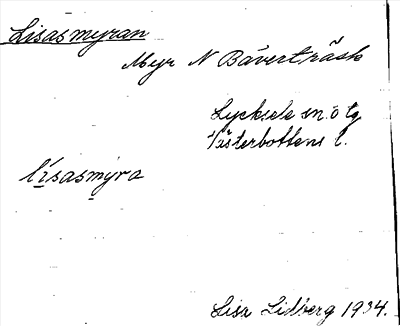 Lisasmyran
Myr N Bäverträsk
Lycksele sn. o tg
Västerbottens l.
lisasmyra
Lisa Lidberg 1934.